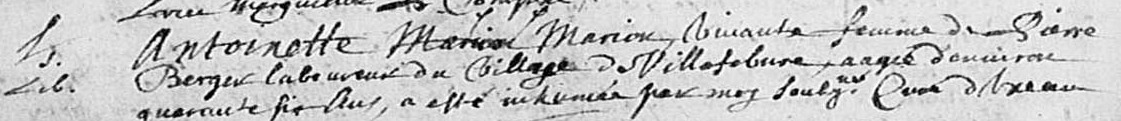 Antoinette Marion Marion, vivante femme de Pierre
Berger laboureur du village de Villefebure, aagée d'environ
quarante six Ans, a esté inhumée par moy soubz.né Curé d